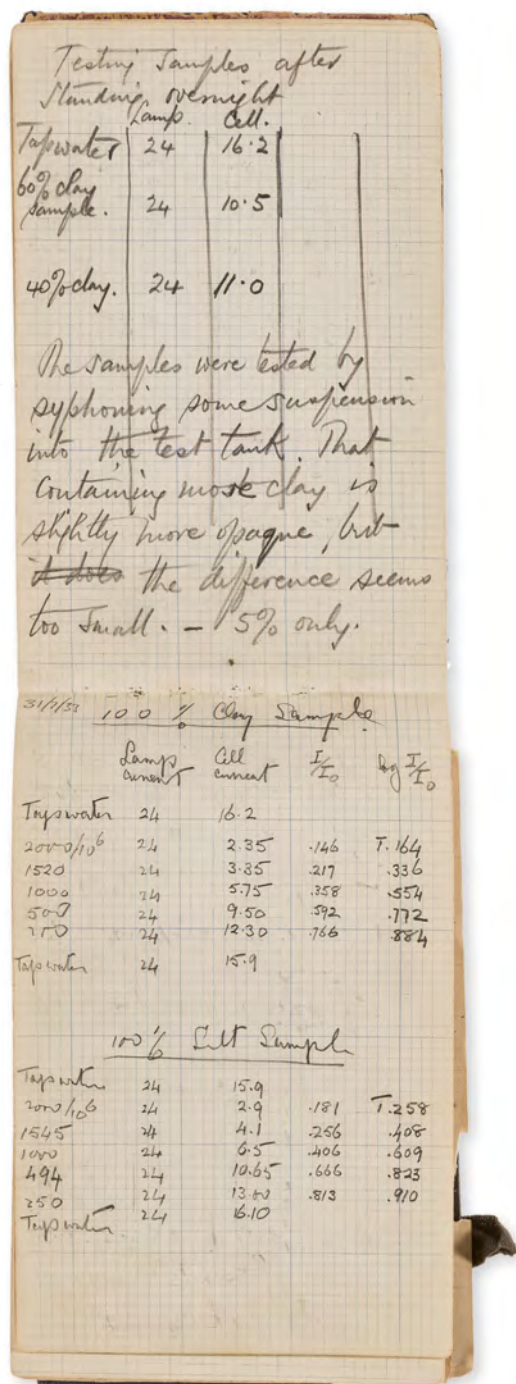 Testing Samples after
Standing overnight
Lamp. Cell.
Tapwater 24 16.2
60% clay
sample. 24 10.5
40% clay. 24 11.0
The samples were tested by
syphoning some suspension
into the test tank. That
containing more clay is
slightly more opaque, but
it does the difference seems
too small. – 5% only.
100% Clay Sample
Lamp current Cell current I/I₀ log I/I₀
Tapswater 24 16.2
2000/10⁶ 24 2.35 .146 T.164
1520 24 3.35 .217 .336
1000 24 5.75 .358 .554
500 24 9.50 .592 .772
250 24 12.30 .766 .884
Tapswater 24 15.9
100% Silt Sample
Tapswater 24 15.9
2000/10⁶ 24 2.9 .181 T.258
1545 24 4.1 .256 .408
1000 24 6.5 .406 .609
494 24 10.65 .666 .823
250 24 13.00 .813 .910
Tapswater 24 16.10